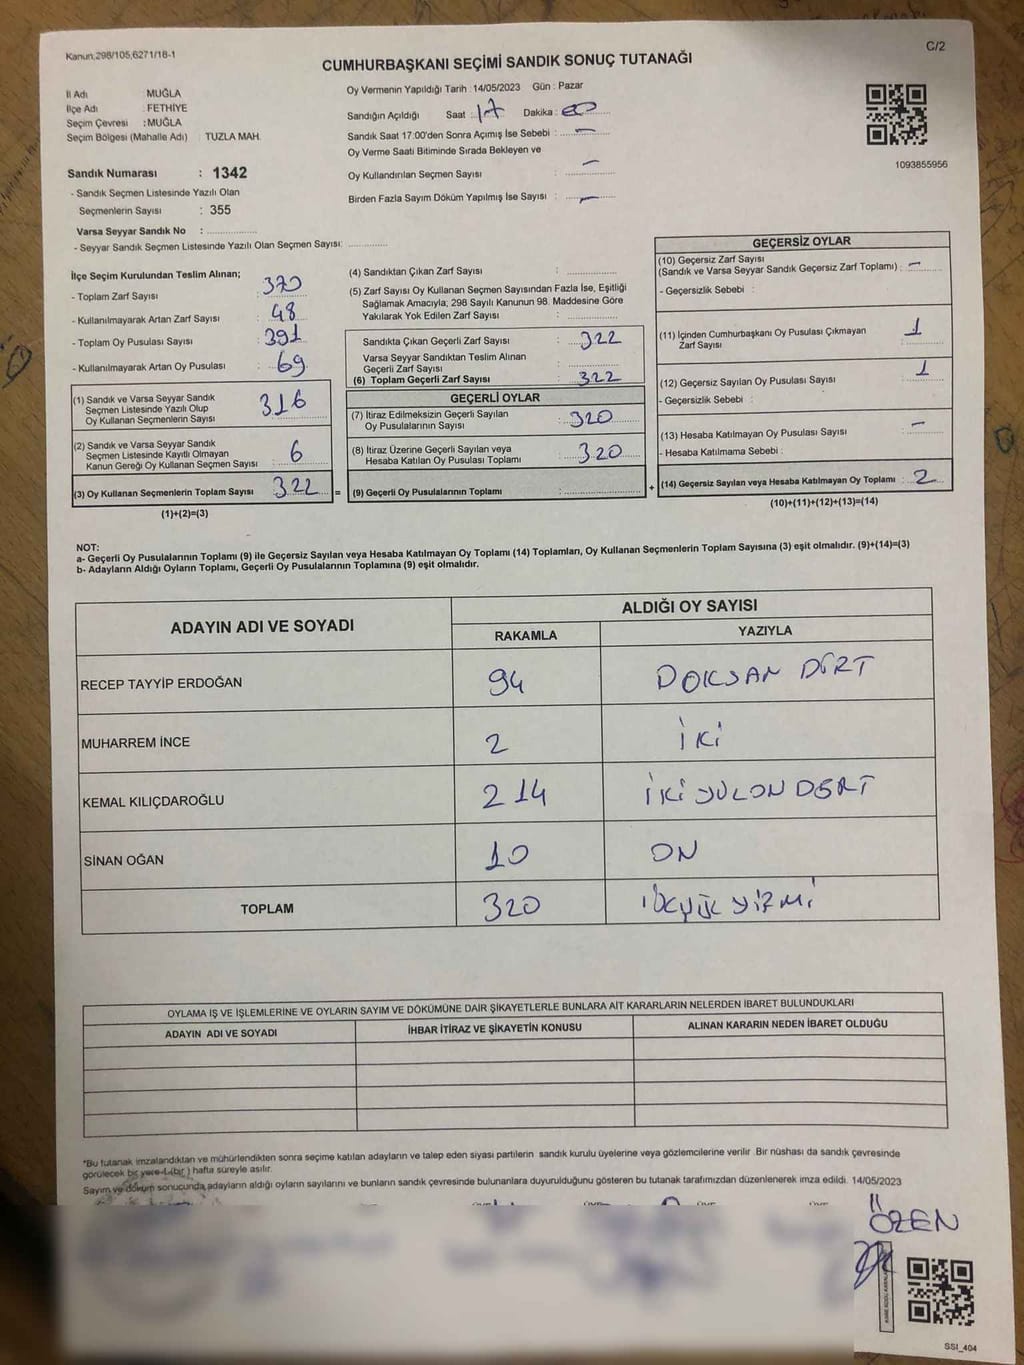 Kanun,298/105,6271/18-1
C/2
CUMHURBAŞKANI SEÇİMİ SANDIK SONUÇ TUTANAĞI
İl Adı : MUĞLA
İlçe Adı : FETHİYE
Seçim Çevresi : MUĞLA
Seçim Bölgesi (Mahalle Adı) : TUZLA MAH.
Sandık Numarası : 1342
- Sandık Seçmen Listesinde Yazılı Olan
Seçmenlerin Sayısı : 355
Varsa Seyyar Sandık No :
- Seyyar Sandık Seçmen Listesinde Yazılı Olan Seçmen Sayısı:
Oy Vermenin Yapıldığı Tarih : 14/05/2023 Gün : Pazar
Sandığın Açıldığı Saat : 17 Dakika : 00
Sandık Saat 17:00'den Sonra Açımış İse Sebebi : -
Oy Verme Saati Bitiminde Sırada Bekleyen ve
Oy Kullandırılan Seçmen Sayısı : -
Birden Fazla Sayım Döküm Yapılmış İse Sayısı : -
1093855956
İlçe Seçim Kurulundan Teslim Alınan;
- Toplam Zarf Sayısı : 370
- Kullanılmayarak Artan Zarf Sayısı : 48
- Toplam Oy Pusulası Sayısı : 391
- Kullanılmayarak Artan Oy Pusulası : 69
(1) Sandık ve Varsa Seyyar Sandık
Seçmen Listesinde Yazılı Olup
Oy Kullanan Seçmenlerin Sayısı : 316
(2) Sandık ve Varsa Seyyar Sandık
Seçmen Listesinde Kayıtlı Olmayan
Kanun Gereği Oy Kullanan Seçmen Sayısı : 6
(3) Oy Kullanan Seçmenlerin Toplam Sayısı : 322 =
(1)+(2)=(3)
(4) Sandıktan Çıkan Zarf Sayısı :
(5) Zarf Sayısı Oy Kullanan Seçmen Sayısından Fazla İse, Eşitliği
Sağlamak Amacıyla; 298 Sayılı Kanunun 98. Maddesine Göre
Yakılarak Yok Edilen Zarf Sayısı :
Sandıkta Çıkan Geçerli Zarf Sayısı : 322
Varsa Seyyar Sandıktan Teslim Alınan
Geçerli Zarf Sayısı :
(6) Toplam Geçerli Zarf Sayısı : 322
GEÇERLİ OYLAR
(7) İtiraz Edilmeksizin Geçerli Sayılan
Oy Pusulalarının Sayısı : 320
(8) İtiraz Üzerine Geçerli Sayılan veya
Hesaba Katılan Oy Pusulası Toplamı : 320
(9) Geçerli Oy Pusulalarının Toplamı : +
GEÇERSİZ OYLAR
(10) Geçersiz Zarf Sayısı
(Sandık ve Varsa Seyyar Sandık Geçersiz Zarf Toplamı) : -
- Geçersizlik Sebebi :
(11) İçinden Cumhurbaşkanı Oy Pusulası Çıkmayan
Zarf Sayısı : 1
(12) Geçersiz Sayılan Oy Pusulası Sayısı : 1
- Geçersizlik Sebebi :
(13) Hesaba Katılmayan Oy Pusulası Sayısı : -
- Hesaba Katılmama Sebebi :
(14) Geçersiz Sayılan veya Hesaba Katılmayan Oy Toplamı : 2
(10)+(11)+(12)+(13)=(14)
NOT:
a- Geçerli Oy Pusulalarının Toplamı (9) ile Geçersiz Sayılan veya Hesaba Katılmayan Oy Toplamı (14) Toplamları, Oy Kullanan Seçmenlerin Toplam Sayısına (3) eşit olmalıdır. (9)+(14)=(3)
b- Adayların Aldığı Oyların Toplamı, Geçerli Oy Pusulalarının Toplamına (9) eşit olmalıdır.
ADAYIN ADI VE SOYADI
ALDIĞI OY SAYISI
RAKAMLA YAZIYLA
RECEP TAYYİP ERDOĞAN 94 DOKSAN DÖRT
MUHARREM İNCE 2 İKİ
KEMAL KILIÇDAROĞLU 214 İKİ YÜZ ON DÖRT
SİNAN OĞAN 10 ON
TOPLAM 320 ÜÇYÜZ YİRMİ
OYLAMA İŞ VE İŞLEMLERİNE VE OYLARIN SAYIM VE DÖKÜMÜNE DAİR ŞİKAYETLERLE BUNLARA AİT KARARLARIN NELERDEN İBARET BULUNDUKLARI
ADAYIN ADI VE SOYADI İHBAR İTİRAZ VE ŞİKAYETİN KONUSU ALINAN KARARIN NEDEN İBARET OLDUĞU
*Bu tutanak imzalandıktan ve mühürlendikten sonra seçime katılan adayların ve talep eden siyasi partilerin sandık kurulu üyelerine veya gözlemcilerine verilir .Bir nüshası da sandık çevresinde
görülecek bir yere 1 (bir ) hafta süreyle asılır.
Sayım ve döküm sonucunda adayların aldığı oyların sayılarını ve bunların sandık çevresinde bulunanlara duyurulduğunu gösteren bu tutanak tarafımızdan düzenlenerek imza edildi. 14/05/2023
ÖZEN
SSI_404